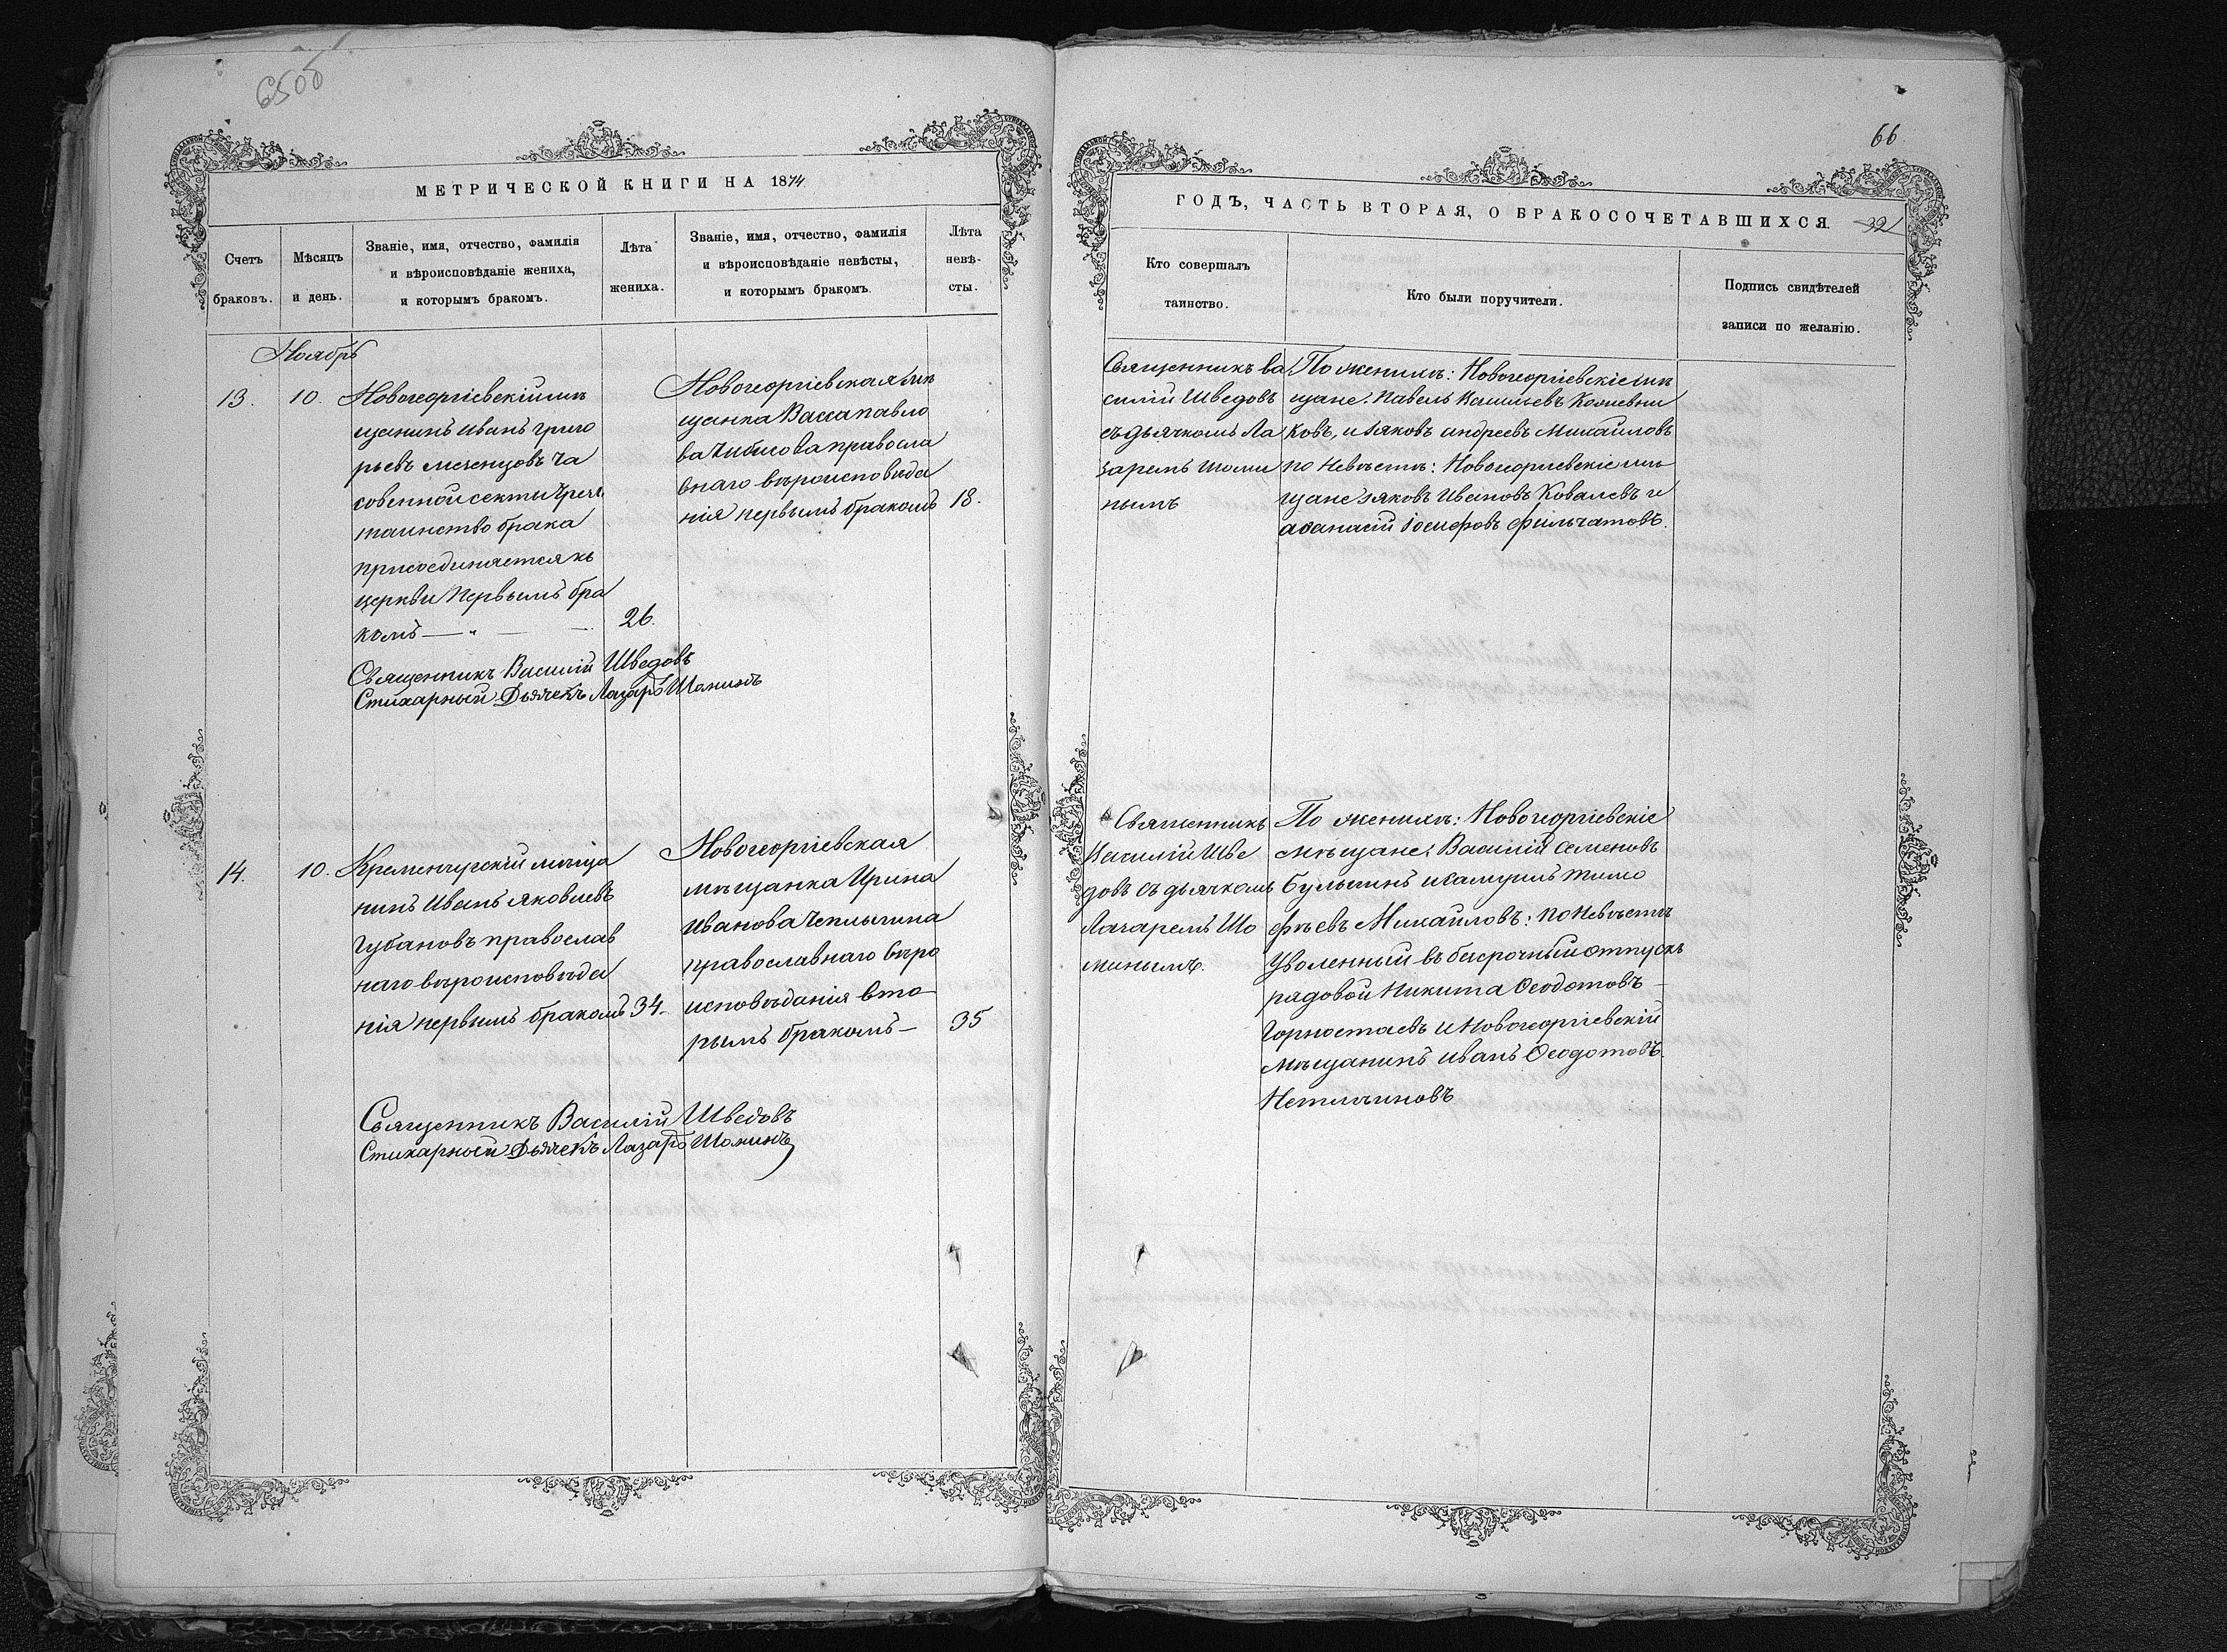 650б
МЕТРИЧЕСКОЙ КНИГИ НА 1874
Счетъ браковъ.
Мѣсяцъ и день.
Званіе, имя, отчество, фамилія
и вѣроисповѣданіе жениха,
и которымъ бракомъ.
Лѣта жениха.
Званіе, имя, отчество, фамилія
и вѣроисповѣданіе невѣсты,
и которымъ бракомъ.
Лѣта невѣ-
сты.
Ноябрь
13.
10.
Новогеоргіевскій мѣ
щанинъ Иванъ Григо
рьевъ Мезенцовъ ча
совенной секты чрезъ
таинство брака
присоединяется къ
церкви Первымъ бра
комъ — " — —
26.
Новогеоргіевская мѣ
щанка Васса Павло
ва Чибисова правосла
внаго вѣроисповѣда
нія первымъ бракомъ
18.
Священникъ Василій Шведовъ
Стихарный Дьячекъ Лазарь Шоминъ
14.
10.
Кременчугскій мѣща
нинъ Иванъ Яковлевъ
Губановъ православ
наго вѣроисповѣда
нія первымъ бракомъ
34.
Новогеоргіевская
мѣщанка Ирина
Иванова Чеплыгина
православнаго вѣро
исповѣданія вто
рымъ бракомъ —
35
Священникъ Василій Шведовъ
Стихарный Дьячекъ Лазарь Шоминъ
66
ГОДЪ, ЧАСТЬ ВТОРАЯ, О БРАКОСОЧЕТАВШИХСЯ.
Кто совершалъ
таинство.
Кто были поручители.
Подпись свидѣтелей
записи по желанію.
Священникъ Ва
силій Шведовъ
съ дьячкомъ Ла
заремъ Шоми
нымъ
По женихѣ: Новогеоргіевскіе мѣ
щане: Павелъ Васильевъ
ковъ, и Яковъ Андреевъ Михайловъ
по Невѣстѣ: Новогеоргіевскіе мѣ
щане Яковъ Ивановъ Ковалевъ и
Аѳанасій Іосифовъ Фильчатовъ.
Священникъ
Василій Шве
довъ съ дьячкомъ
Лазаремъ Шо
минымъ.
По женихѣ: Новогеоргіевскіе
мѣщане: Василій Семеновъ
Булыгинъ и Самуилъ Тимо
фѣевъ Михайловъ: по Невѣстѣ
Уволенный въ безсрочный отпускъ
рядовой Никита Ѳеодотовъ —
Горностаевъ и Новогеоргіевскій
Мѣщанинъ Иванъ Ѳеодотовъ